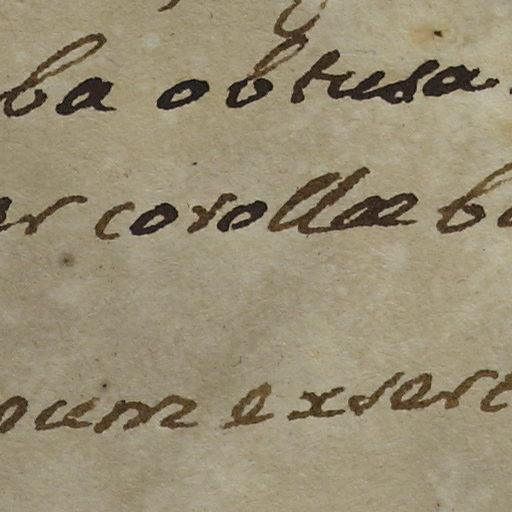 ba obtusa.
er corollæ b
um exsert